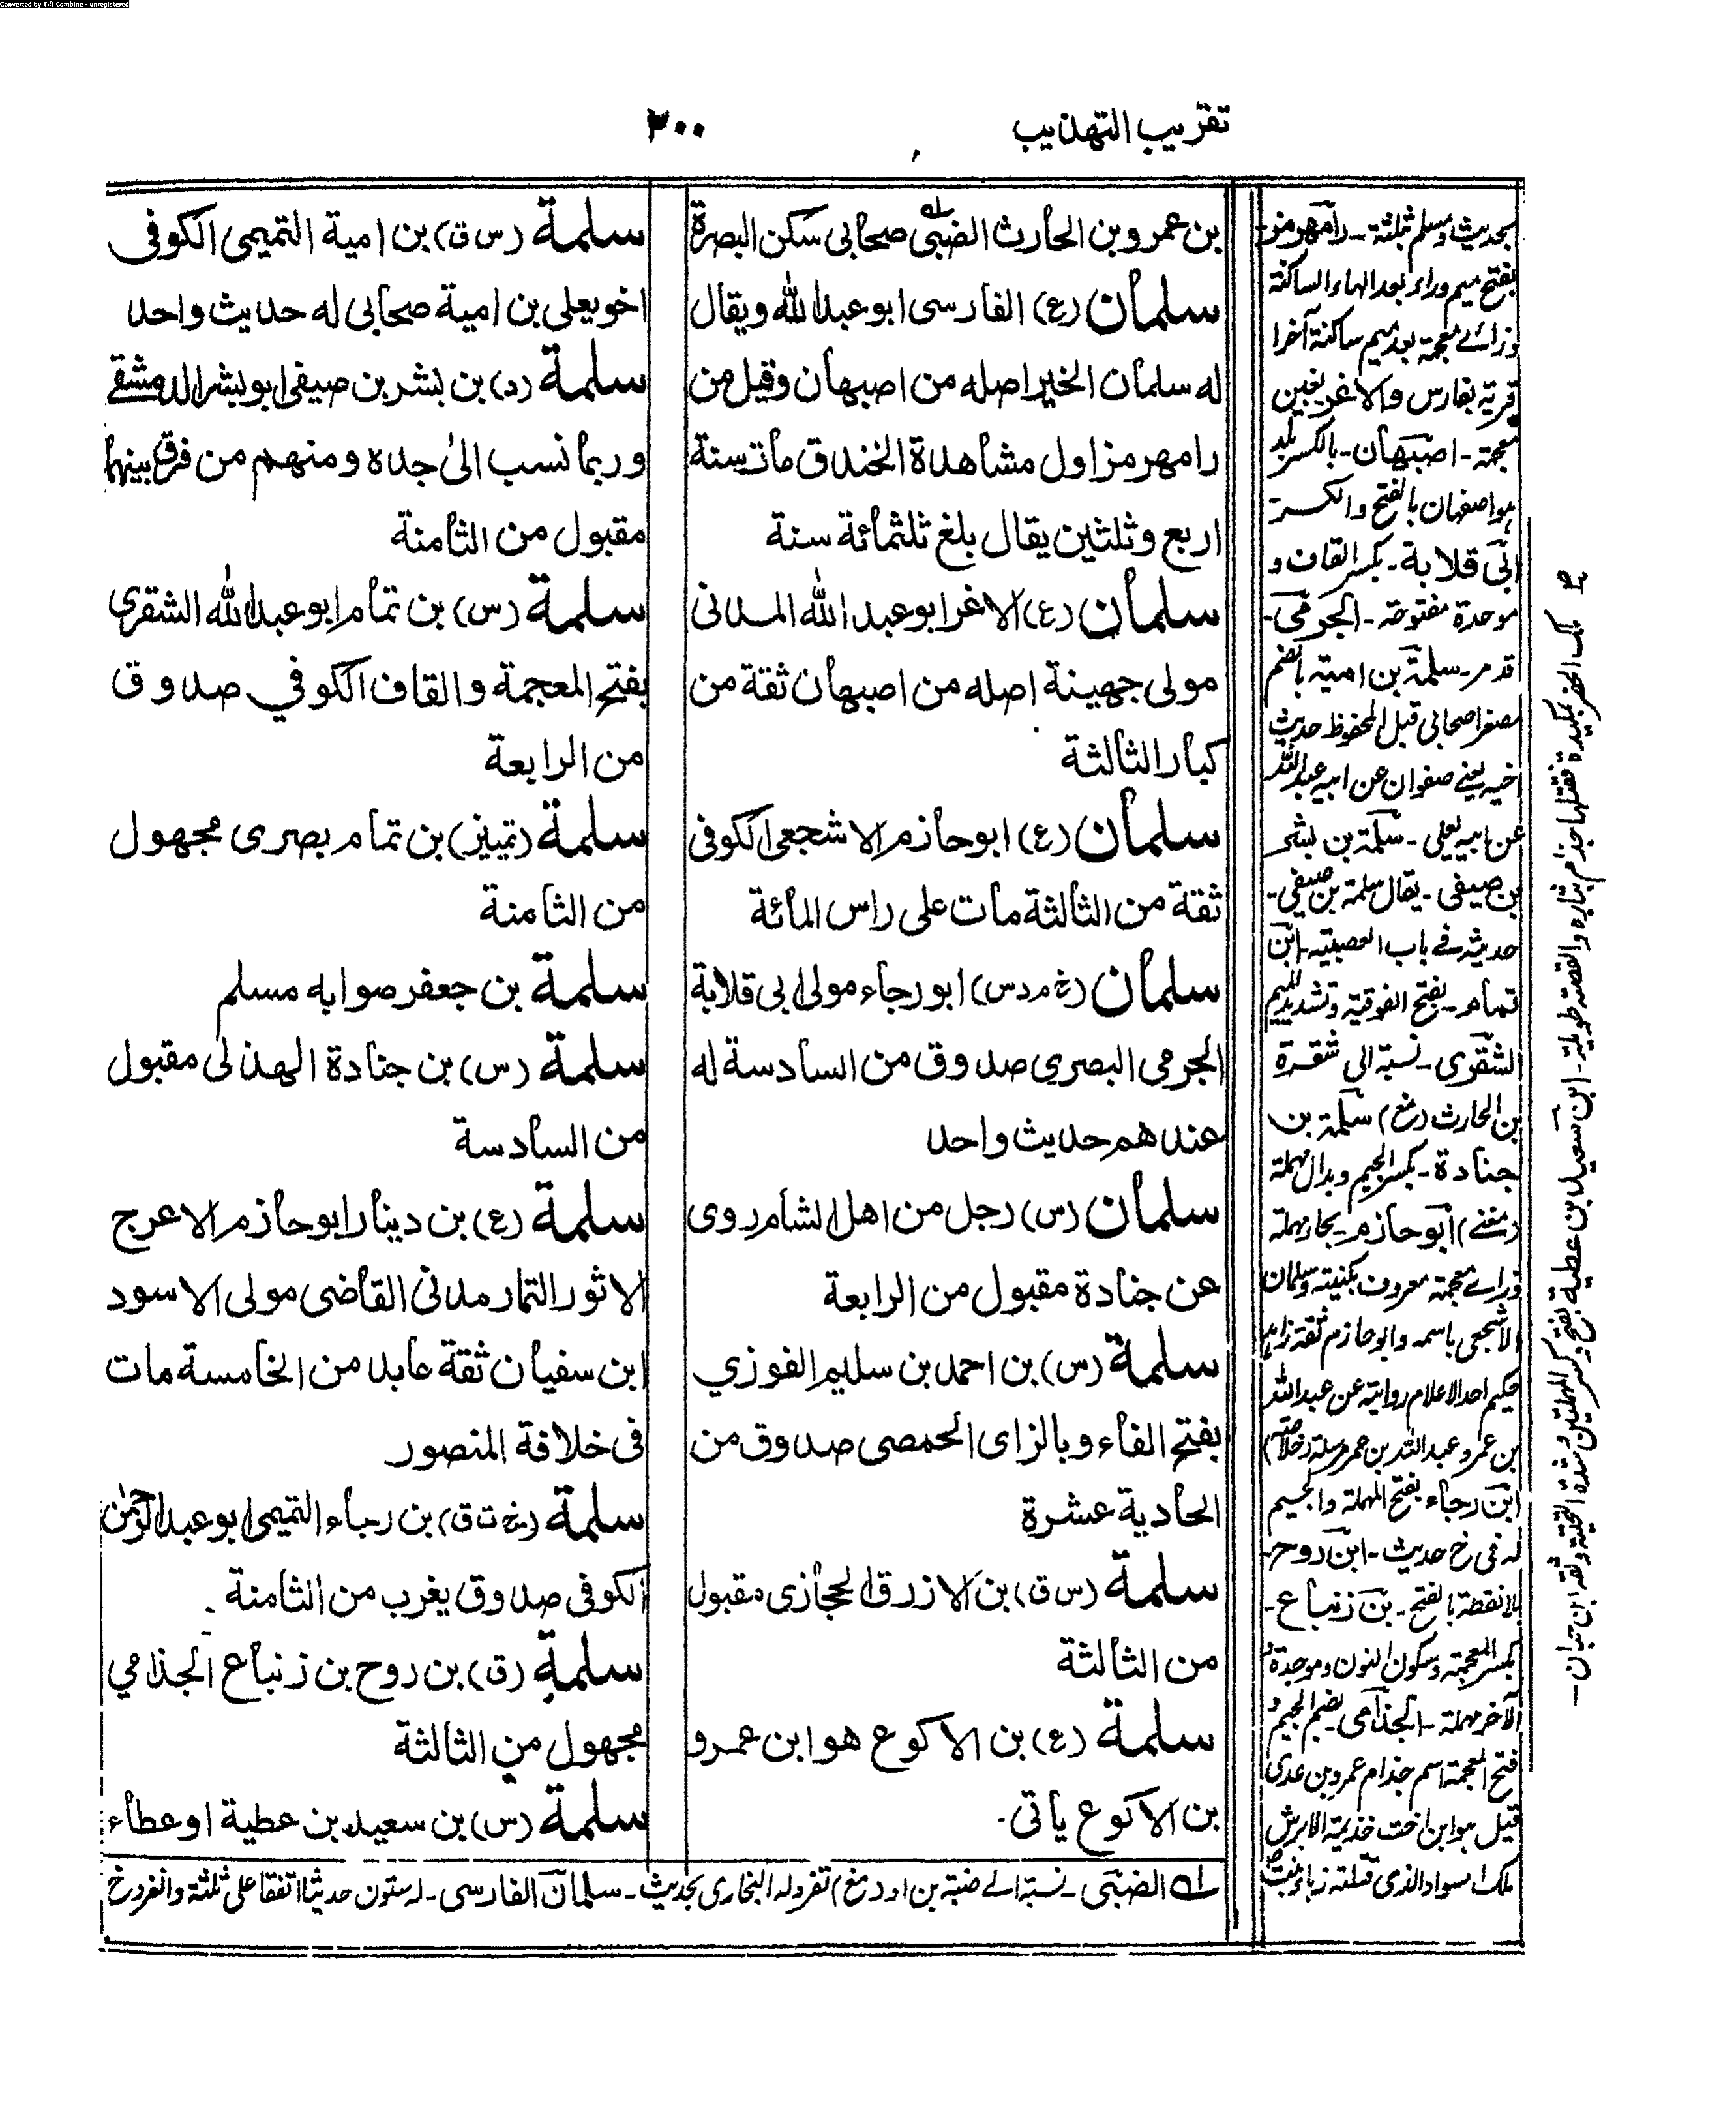 Converted by Tiff Combine - unregistered
تقريب التهذيب
٢٠٠
بن عمرو بن الحارث الضبى صحابى سكن البصرة
سلمان (ع) الفارسى ابو عبد الله ويقال
له سلمان الخير اصله من اصبهان وقيل من
رامهرمز اول مشاهدة الخندق مات سنة
اربع وثلثين يقال بلغ ثلثمائة سنة
سلمان (ع) الاغر ابو عبد الله المدنى
مولى جهينة اصله من اصبهان ثقة من
كبار الثالثة
سلمان (ع) ابو حازم الاشجعى الكوفى
ثقة من الثالثة مات على راس المائة
سلمان (خ م د س) ابو رجاء مولى ابى قلابة
الجرمى البصرى صدوق من السادسة له
عندهم حديث واحد
سلمان (س) رجل من اهل الشام روى
عن جنادة مقبول من الرابعة
سلمة (س) بن احمد بن سليم الفوزي
بفتح الفاء وبالزاى الحمصى صدوق من
الحادية عشرة
سلمة (س ق) بن الازرق الحجازى مقبول
من الثالثة
سلمة (ع) بن الاكوع هو ابن عمرو
بن الاكوع ياتى.
سلمة (س ق) بن امية التميمى الكوفى
اخو يعلى بن امية صحابى له حديث واحد
سلمة (د) بن بشر بن صيفى ابو بشر الدمشقے
وربما نسب الى جده ومنهم من فرق بينهما
مقبول من الثامنة
سلمة (س) بن تمام ابو عبد الله الشقرى
بفتح المعجمة والقاف الكوفي صدوق
من الرابعة
سلمة (تمييز) بن تمام بصرى مجهول
من الثامنة
سلمة بن جعفر صوابه مسلم
سلمة (س) بن جنادة الهذلى مقبول
من السادسة
سلمة (ع) بن دينار ابو حازم الاعرج
الاثور التمار مدنى القاضى مولى الاسود
ابن سفيان ثقة عابد من الخامسة مات
فى خلافة المنصور
سلمة (خ ت ق) بن رجاء التميمى ابو عبد الرحمن
الكوفى صدوق يغرب من الثامنة.
سلمة (ق) بن روح بن زنباع الجذامي
مجهول من الثالثة
سلمة (س) بن سعيد بن عطية او عطاء
بحديث ومسلم بثلثة - رامهرمز -
بفتح ميم وراء بعد الهاء الساكنة
وزائے معجمة بعد ميم ساكنة آخرا
قرية بفارس والاغر بغين
معجمة - اصبهان - بالكسر بلد
هو اصفهان بالفتح والكسر
ابى قلابة - بكسر القاف و
موحدة مفتوحة - الجرمى -
قدمر - سلمة بن امية بالضم
مصغرا صحابى قبل المحفوظ حديث
اخيه يعنے صفوان عن ابيه عبد الله
عن ابيه يعلى - سلمة بن بشر
بن صيفى - يقال سلمة بن صيفى -
حديثه فے باب العصبية - ابن
تمام - بفتح الفوقية وتشديد الميم
الشقرى - نسبة الى شقرة
بن الحارث (مغ) سلمة بن
جنادة - بكسر الجيم وبدال مهملة
(مغنے) ابو حازم - بحاء مهملة
وزاے معجمة معروف بكنيته وسلمان
الاشجعى باسمه وابو حازم ثقة زاهد
حكيم احد الاعلام رواية عن عبد الله
بن عمرو عبد الله بن عمر مرسلة (خلاصه)
ابن رجاء بفتح المهملة والجيم
له فى خ حديث - ابن روح -
بلا نقطة بالفتح - بن زنباع -
بكسر المعجمة وسكون النون وموحدة و
الآخر مهملة - الجذامى - بضم الجيم و
فتح المعجمة اسم جذام عمرو بن عدى
قيل هو ابن اخت جذيمة الابرش
ملك السواد الذى قتلته زباء بنت
له الضبى - نسبة الے ضبة بن اود (مغ) تفرد له البخارى بحديث - سلمان الفارسى - له ستون حديثا اتفقا على ثلثة وانفرد خ
ملك الحضر بمكيدة فقتلها جذام بثاره والقصة طويلة - ابن سعيد بن عطية بفتح وكسر المهملتين وشدة التحتية وثقه ابن حبان -